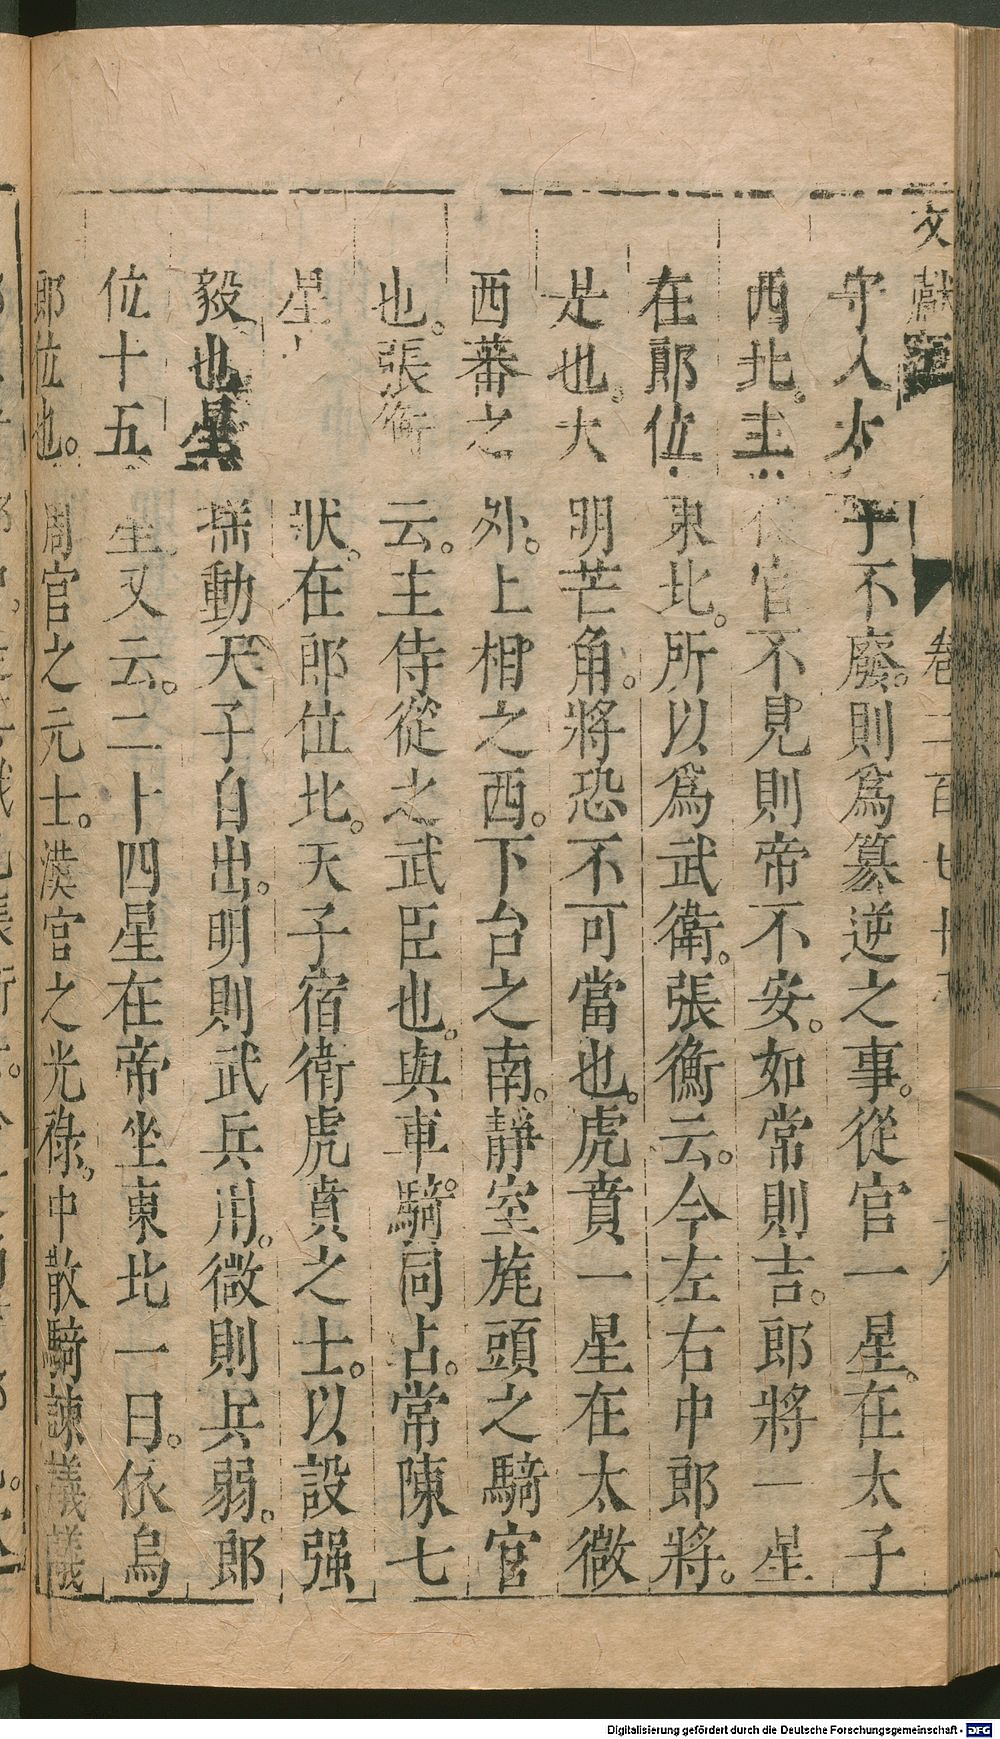 守人太子不廢。則爲篡逆之事。從官一星。在太子
西北。主從官不見則帝不安。如常則吉。郎將一星
在郎位東北。所以爲武衛。張衡云。今左右中郎將。
是也。大明芒角。將恐不可當也。虎賁一星在太微
西蕃之外。上相之西。下台之南。靜室旄頭之騎官
也。張衡云。主侍從之武臣也。與車騎同占。常陳七
星 狀。在郎位北。天子宿衛虎賁之士。以設强
毅也。星搖動天子自出。明則武兵用。微則兵弱。郎
位十五星。又云。二十四星在帝坐東北一曰。依烏
郎位也。周官之元士。漢官之光祿。中散騎諫議議
文獻 卷二百七十
Digitalisierung gefördert durch die Deutsche Forschungsgemeinschaft - DFG